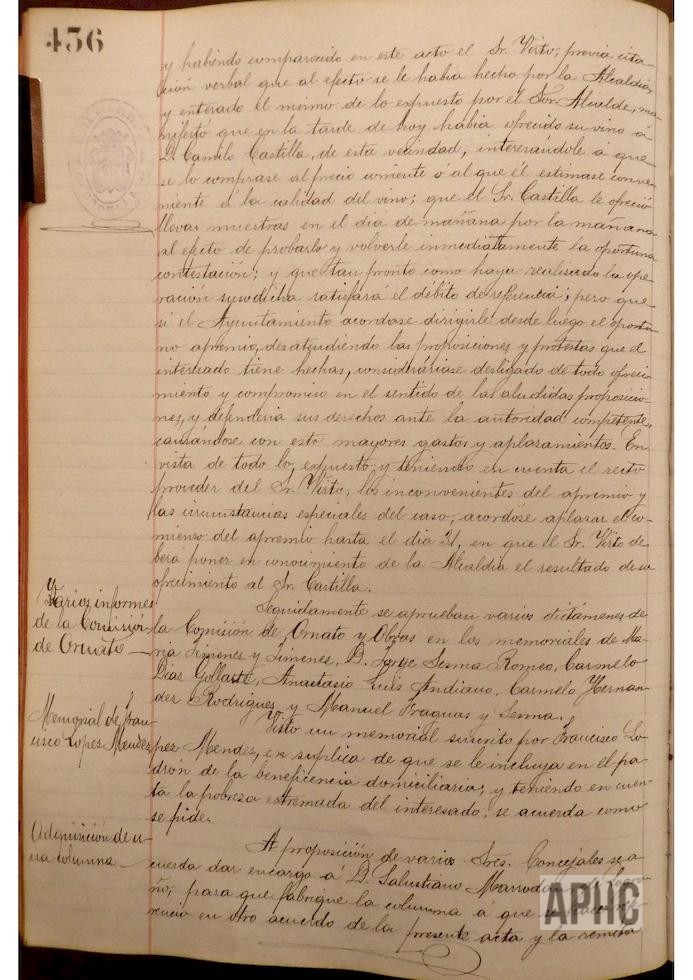 436
y habiendo comparecido en este acto el Sr. Virto, previa cita-
ción verbal que al efecto se le había hecho por la Alcaldía,
y enterado el mismo de lo expuesto por el Sor. Alcalde, ma-
nifestó que en la tarde de hoy había ofrecido su vino á
D. Camilo Castilla, de esta vecindad, interesándole á que
se lo comprase al precio corriente ó al que él estimase conve-
niente á la calidad del vino; que el Sr. Castilla le ofreció
llevar muestras en el día de mañana por la mañana
al efecto de probarlo y volverle inmediatamente la oportuna
contestación; y que tan pronto como haya realisado la ope-
ración susodicha satisfará el débito de referencia; pero que
si el Ayuntamiento acordase dirigirle desde luego el oportu-
no apremio, desatendiendo las proposiciones y protestas que el
interesado tiene hechas, consideraríase desligado de todo ofreci-
miento y compromiso en el sentido de las aludidas proposicio-
nes, y defendería sus derechos ante la autoridad competente,
causándose con esto mayores gastos y aplazamientos. En
vista de todo lo expuesto y teniendo en cuenta el recto
proceder del Sr. Virto, los inconvenientes del apremio y
las circunstancias especiales del caso, acordóse aplazar el co-
mienso del apremio hasta el día 21, en que el Sr. Virto de-
berá poner en conocimiento de la Alcaldía el resultado de su
ofrecimiento al Sr. Castilla.
Varios informes
de la Comisión
de Ornato
Seguidamente se aprueban varios dictámenes de
la Comisión de Ornato y Obras en los memoriales de Ma-
ría Jimenes y Jimenes, D. Jorge Sesma Romeo, Carmelo
Dias Gollaste, Anastasio Luis Andiano, Carmelo Hernan-
des Rodrigues y Manuel Fraguas y Sesma.
Memorial de Fran-
cisco Lopes Mendes
Visto un memorial suscrito por Francisco Lo-
pes Mendes, en suplica de que se le incluya en el pa-
drón de la beneficencia domiciliaria; y teniendo en cuen-
ta la pobreza extremada del interesado, se acuerda como
se pide.
Adquisición de u-
na columna
A proposición de varios Sres. Concejales se a-
cuerda dar encargo á D. Salustiano Marrodan de Logro-
ño, para que fabrique la columna á que se hace refe-
rencia en otro acuerdo de la presente acta y la remita
APHC